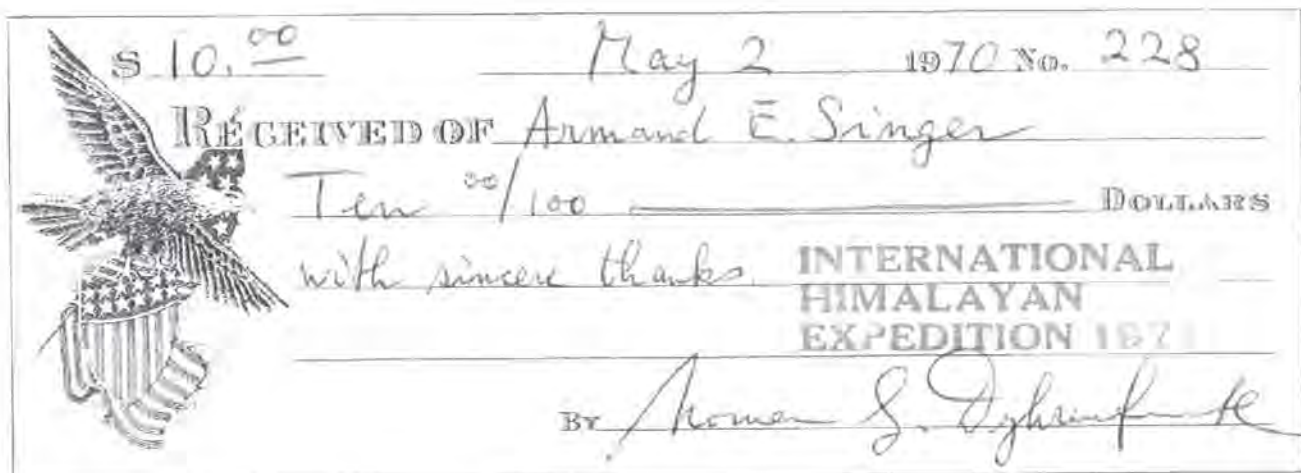 $ 10.00 May 2 1970 No. 228
RECEIVED OF Armand E. Singer
Ten 00/100 DOLLARS
with sincere thanks. INTERNATIONAL
HIMALAYAN
EXPEDITION 197
BY Norman G. Dyhrenfurth